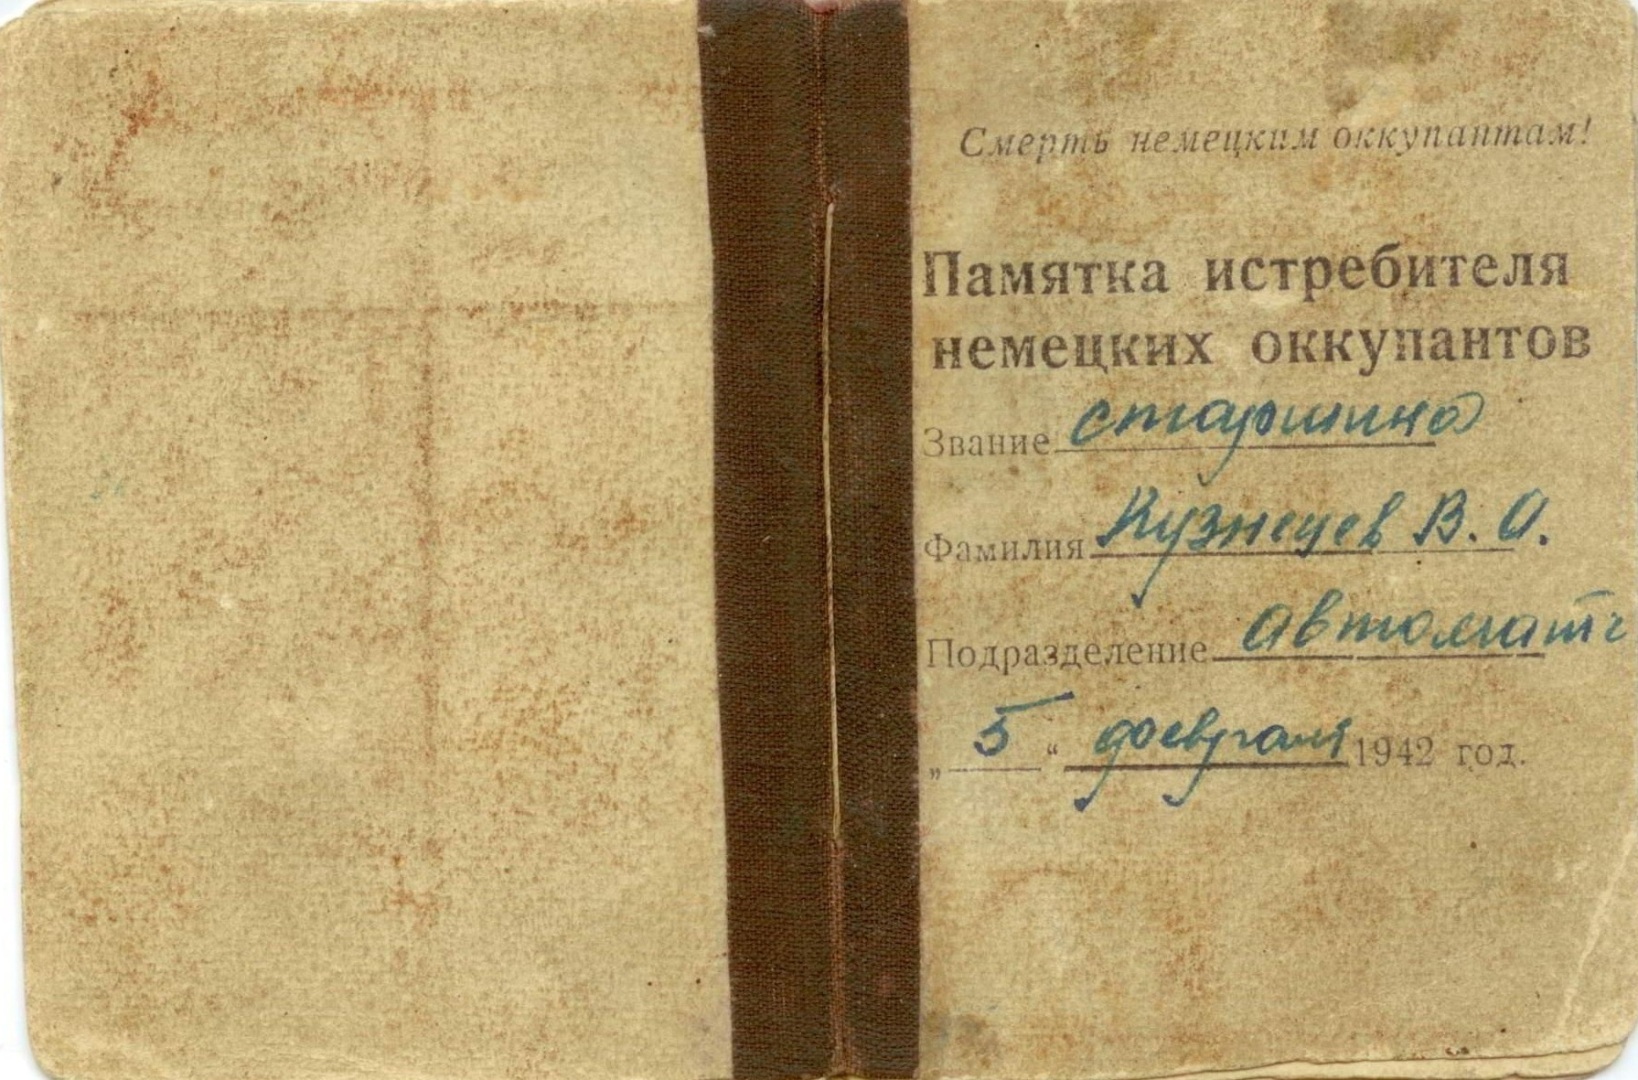 Смерть немецким оккупантам!
Памятка истребителя
немецких оккупантов
Звание старшина
Фамилия Кузнецев В. А.
Подразделение автоматч
„5“ февраля 1942 год.